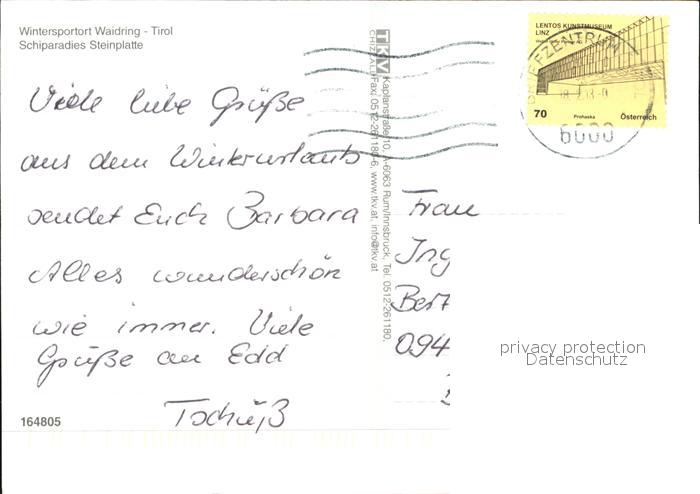 Wintersportort Waidring - Tirol
Schiparadies Steinplatte
Viele liebe Grüße
aus dem Winterurlaub
sendet Euch Barbara
Alles wunderschön
wie immer. Viele
Grüße an Edd
Tschüß
164805
TKV
Kaplanstraße 10, A-6063 Rum/Innsbruck, Tel. 0512-261180,
Fax: 0512-261180-6, www.tkv.at, info@tkv.at
LENTOS KUNSTMUSEUM
LINZ
70
Prohaska
Österreich
BRIEFZENTRUM
6000
Frau
Ing
094
privacy protection
Datenschutz